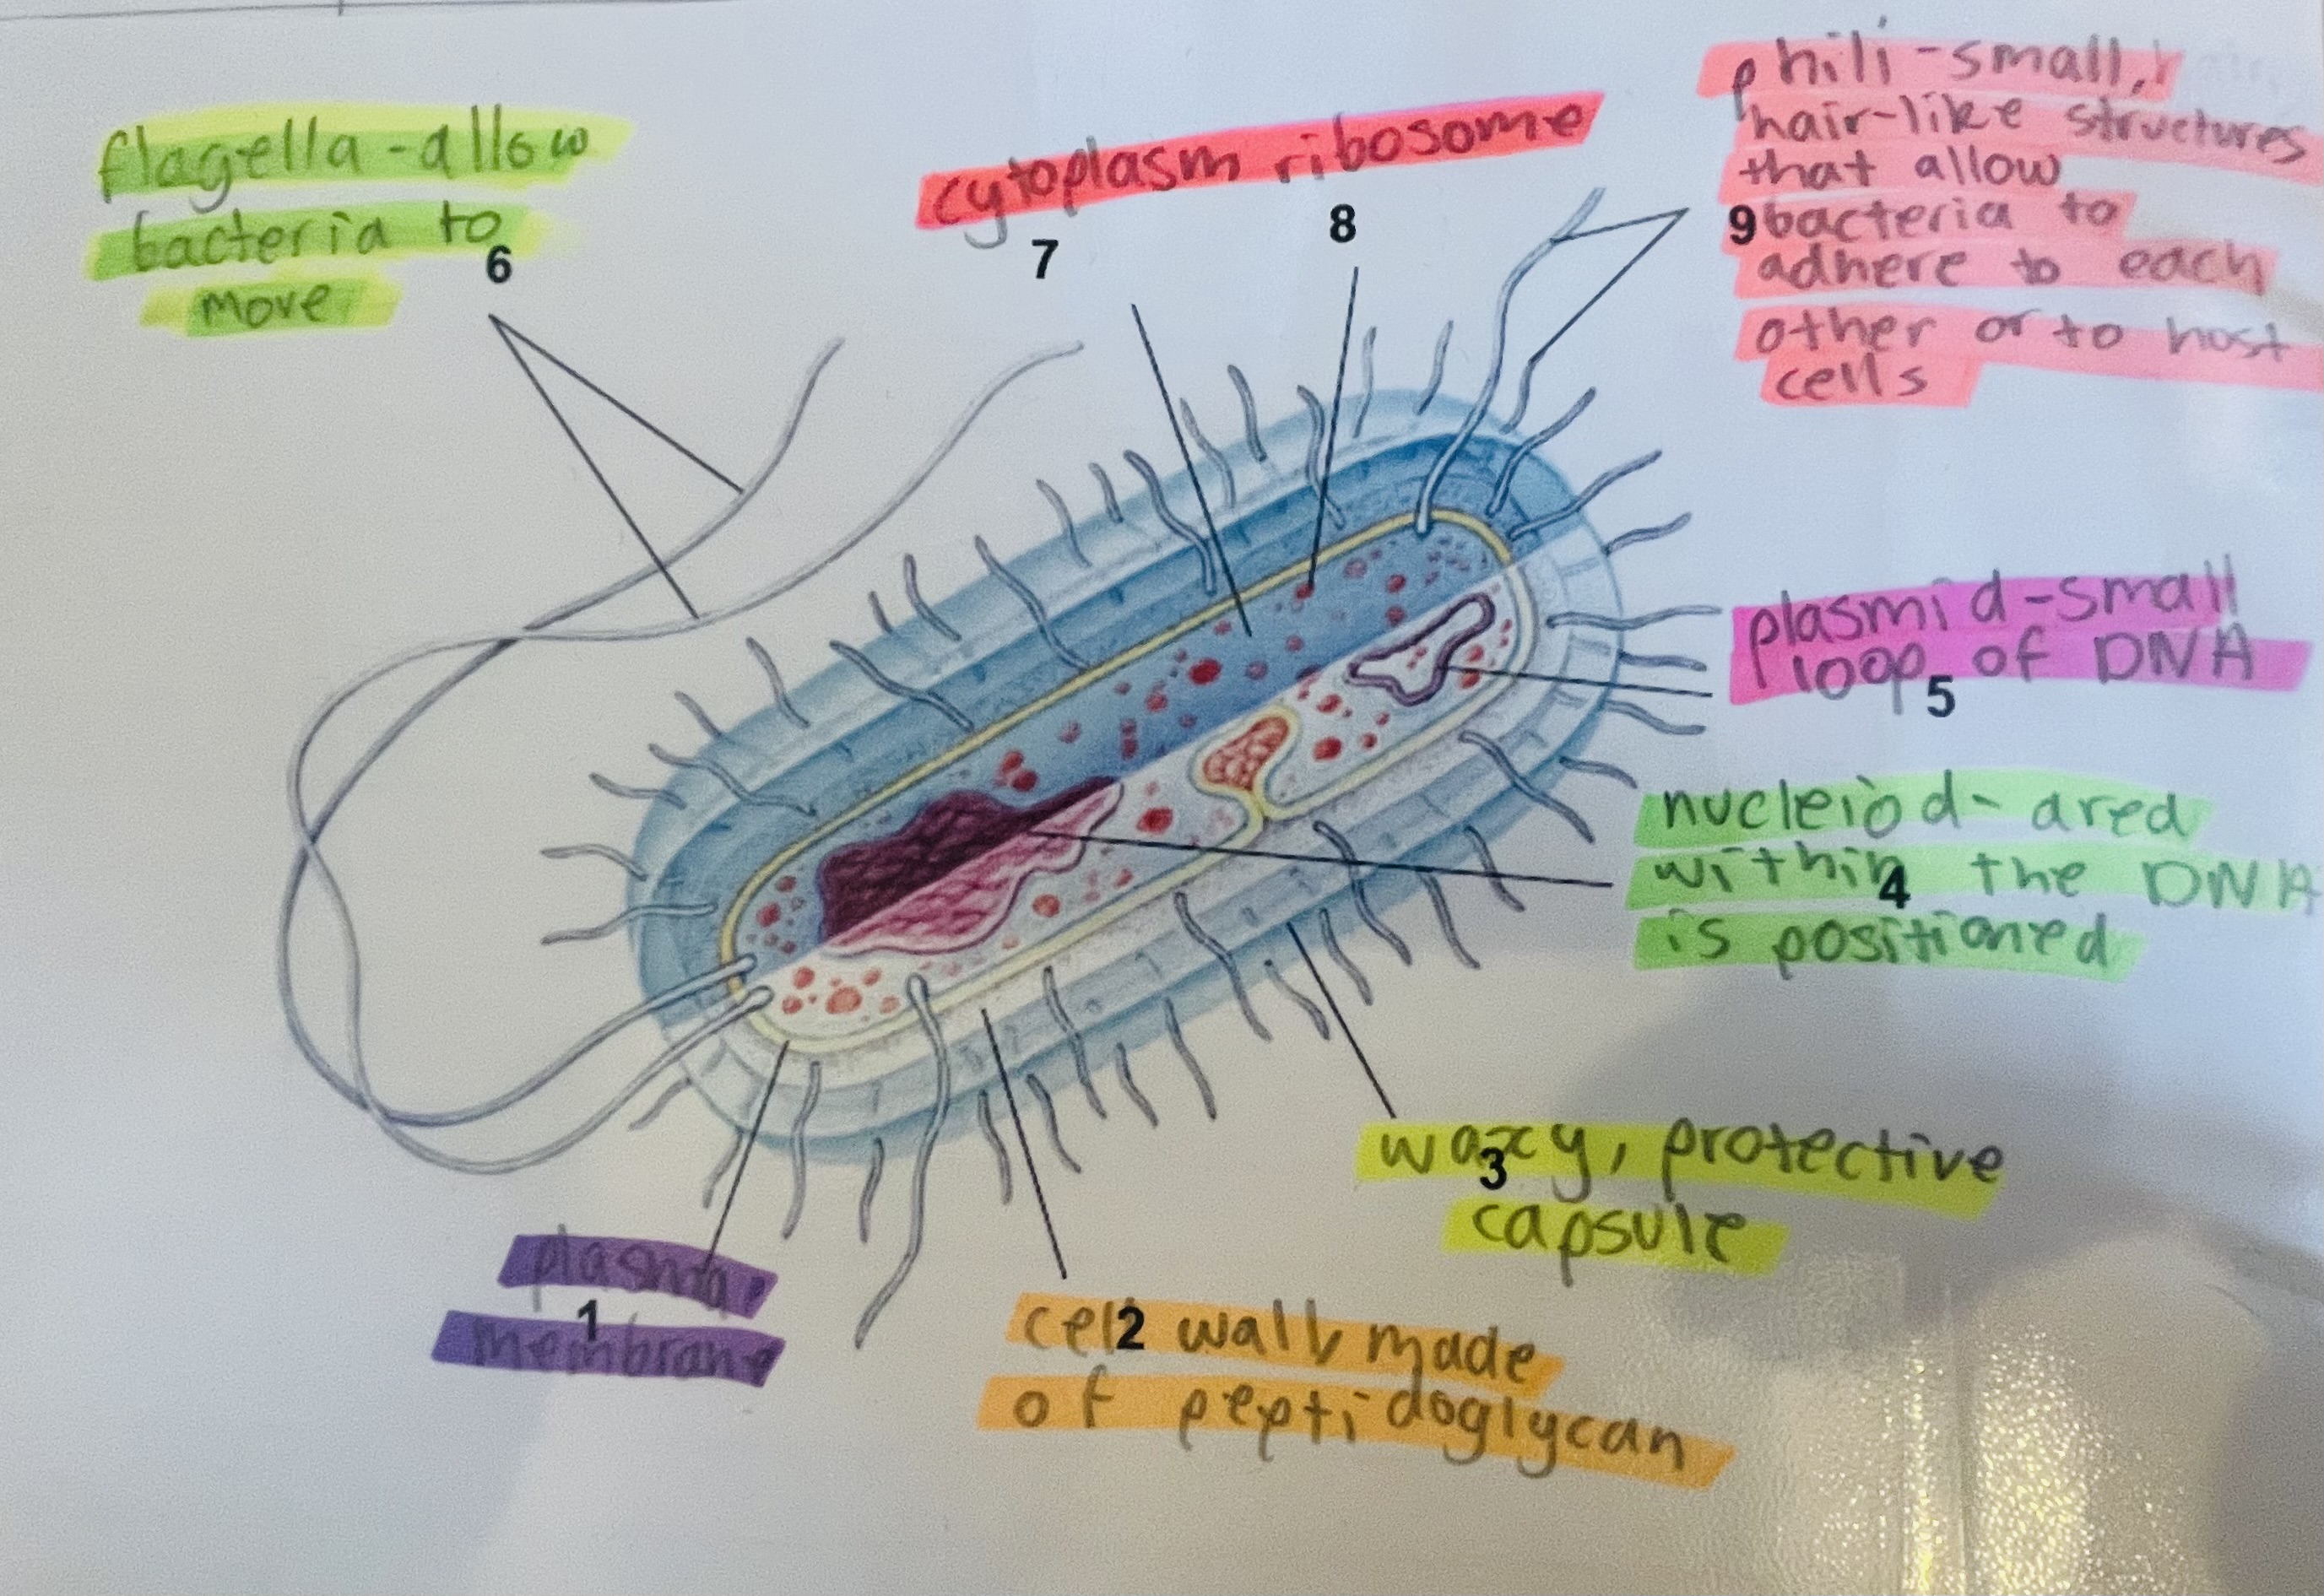 flagella-allow
bacteria to
6
move
cytoplasm ribosome
7
8
phili-small,
hair-like structures
that allow
9 bacteria to
adhere to each
other or to host
cells
plasmid-small
loop of DNA
5
nucleiod- area
within the DNA
4
is positioned
waxy, protective
3
capsule
plasma
1
membrane
cell wall made
2
of peptidoglycan